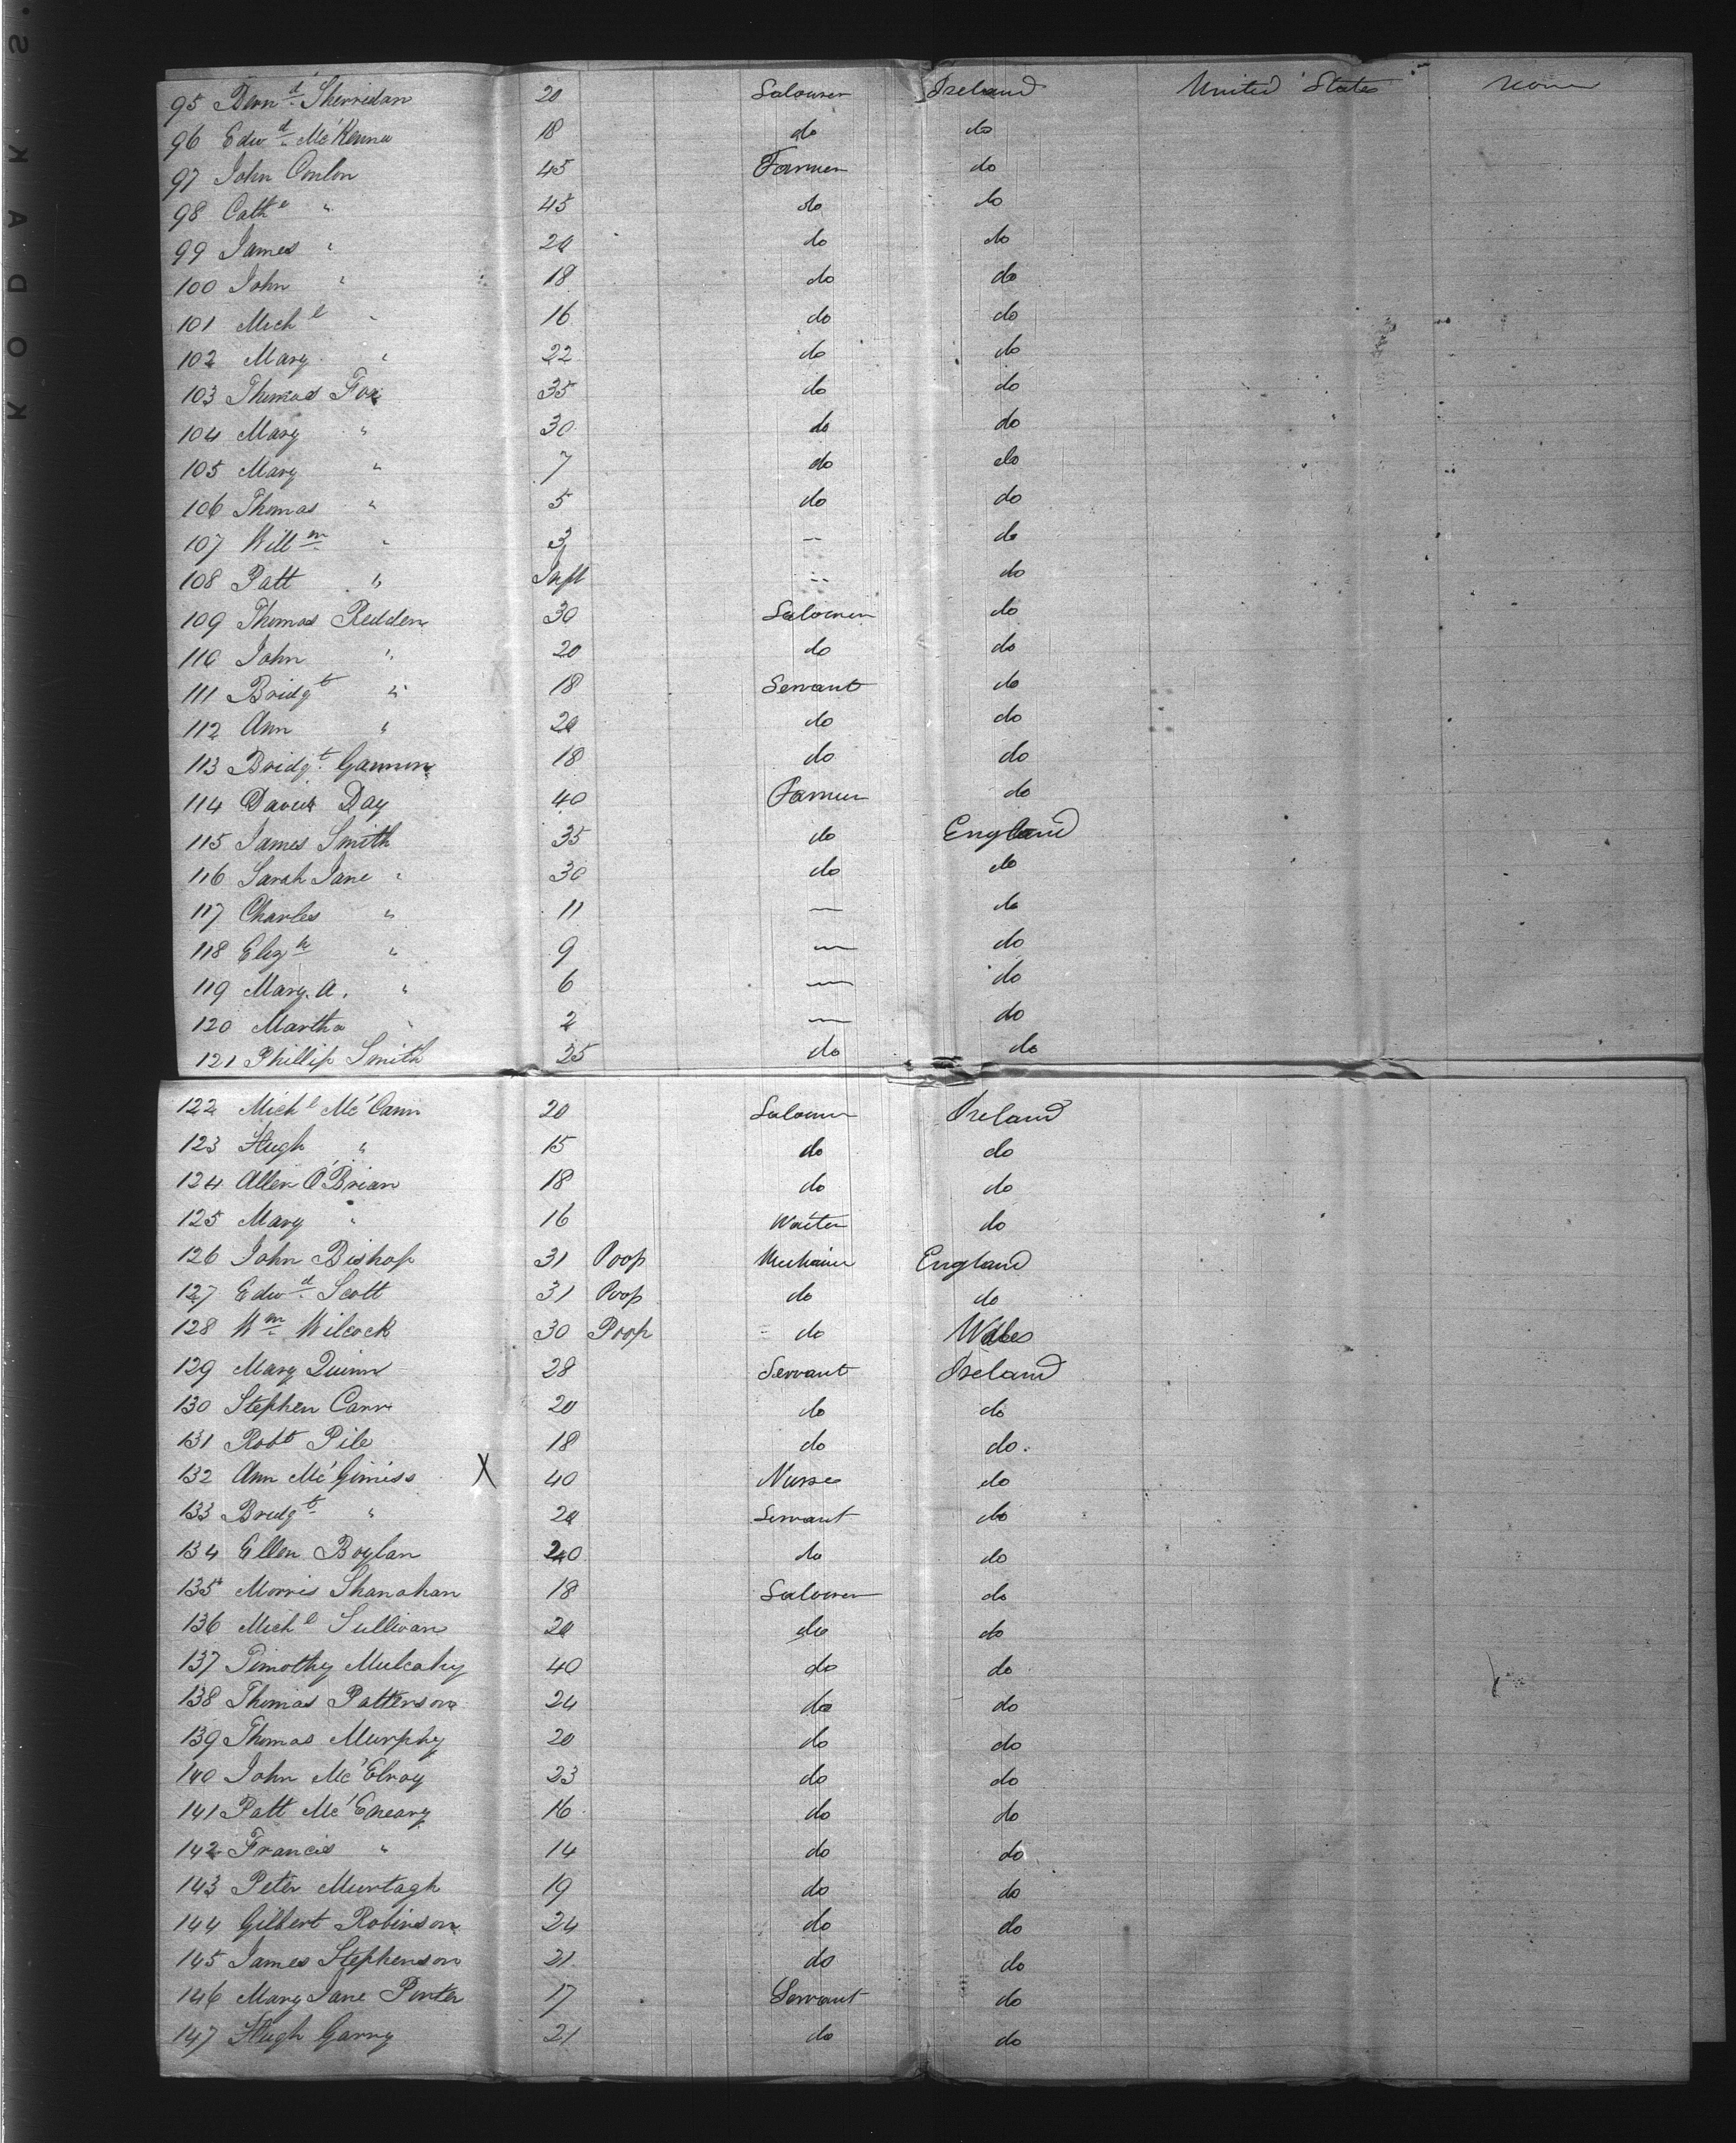 95 Bern^d Sherridan 20 Labourer Ireland United States None
96 Edw^d McKenna 18 do do
97 John Conlon 45 Farmer do
98 Cath^e " 45 do do
99 James " 20 do do
100 John " 18 do do
101 Mich^l " 16 do do
102 Mary " 22 do do
103 Thomas Fox 35 do do
104 Mary " 30 do do
105 Mary " 7 do do
106 Thomas " 5 do do
107 Will^m " 3 — do
108 Patt " Inft — do
109 Thomas Redden 30 Labourer do
110 John " 20 do do
111 Bridg^t " 18 Servant do
112 Ann " 20 do do
113 Bridg^t Gannon 18 do do
114 David Day 40 Farmer do
115 James Smith 35 do England
116 Sarah Jane " 30 do do
117 Charles " 11 — do
118 Eliz^h " 9 — do
119 Mary. A. " 6 — do
120 Martha " 2 — do
121 Phillip Smith 25 do do
122 Mich^l Mc'Cann 20 Labourer Ireland
123 Hugh " 15 do do
124 Allen O'Brian 18 do do
125 Mary " 16 Waiter do
126 John Bishop 31 Poop Mechanic England
127 Edw^d Scott 31 Poop do do
128 W^m Wilcock 30 Poop do Wales
129 Mary Quinn 28 Servant Ireland
130 Stephen Carr 20 do do
131 Rob^t Pile 18 do do.
132 Ann Mc'Giniss X 40 Nurse do
133 Bridg^t " 20 Servant do
134 Ellen Boylan 20 do do
135 Morris Shanahan 18 Labourer do
136 Mich^l Sullivan 20 do do
137 Timothy Mulcahy 40 do do
138 Thomas Patterson 24 do do
139 Thomas Murphy 20 do do
140 John Mc'Elroy 23 do do
141 Patt Mc'Eneary 16 do do
142 Francis " 14 do do
143 Peter Murtagh 19 do do
144 Gilbert Robinson 24 do do
145 James Stephenson 21 do do
146 Mary Jane Porter 17 Servant do
147 Hugh Garry 21 do do
KODAK S